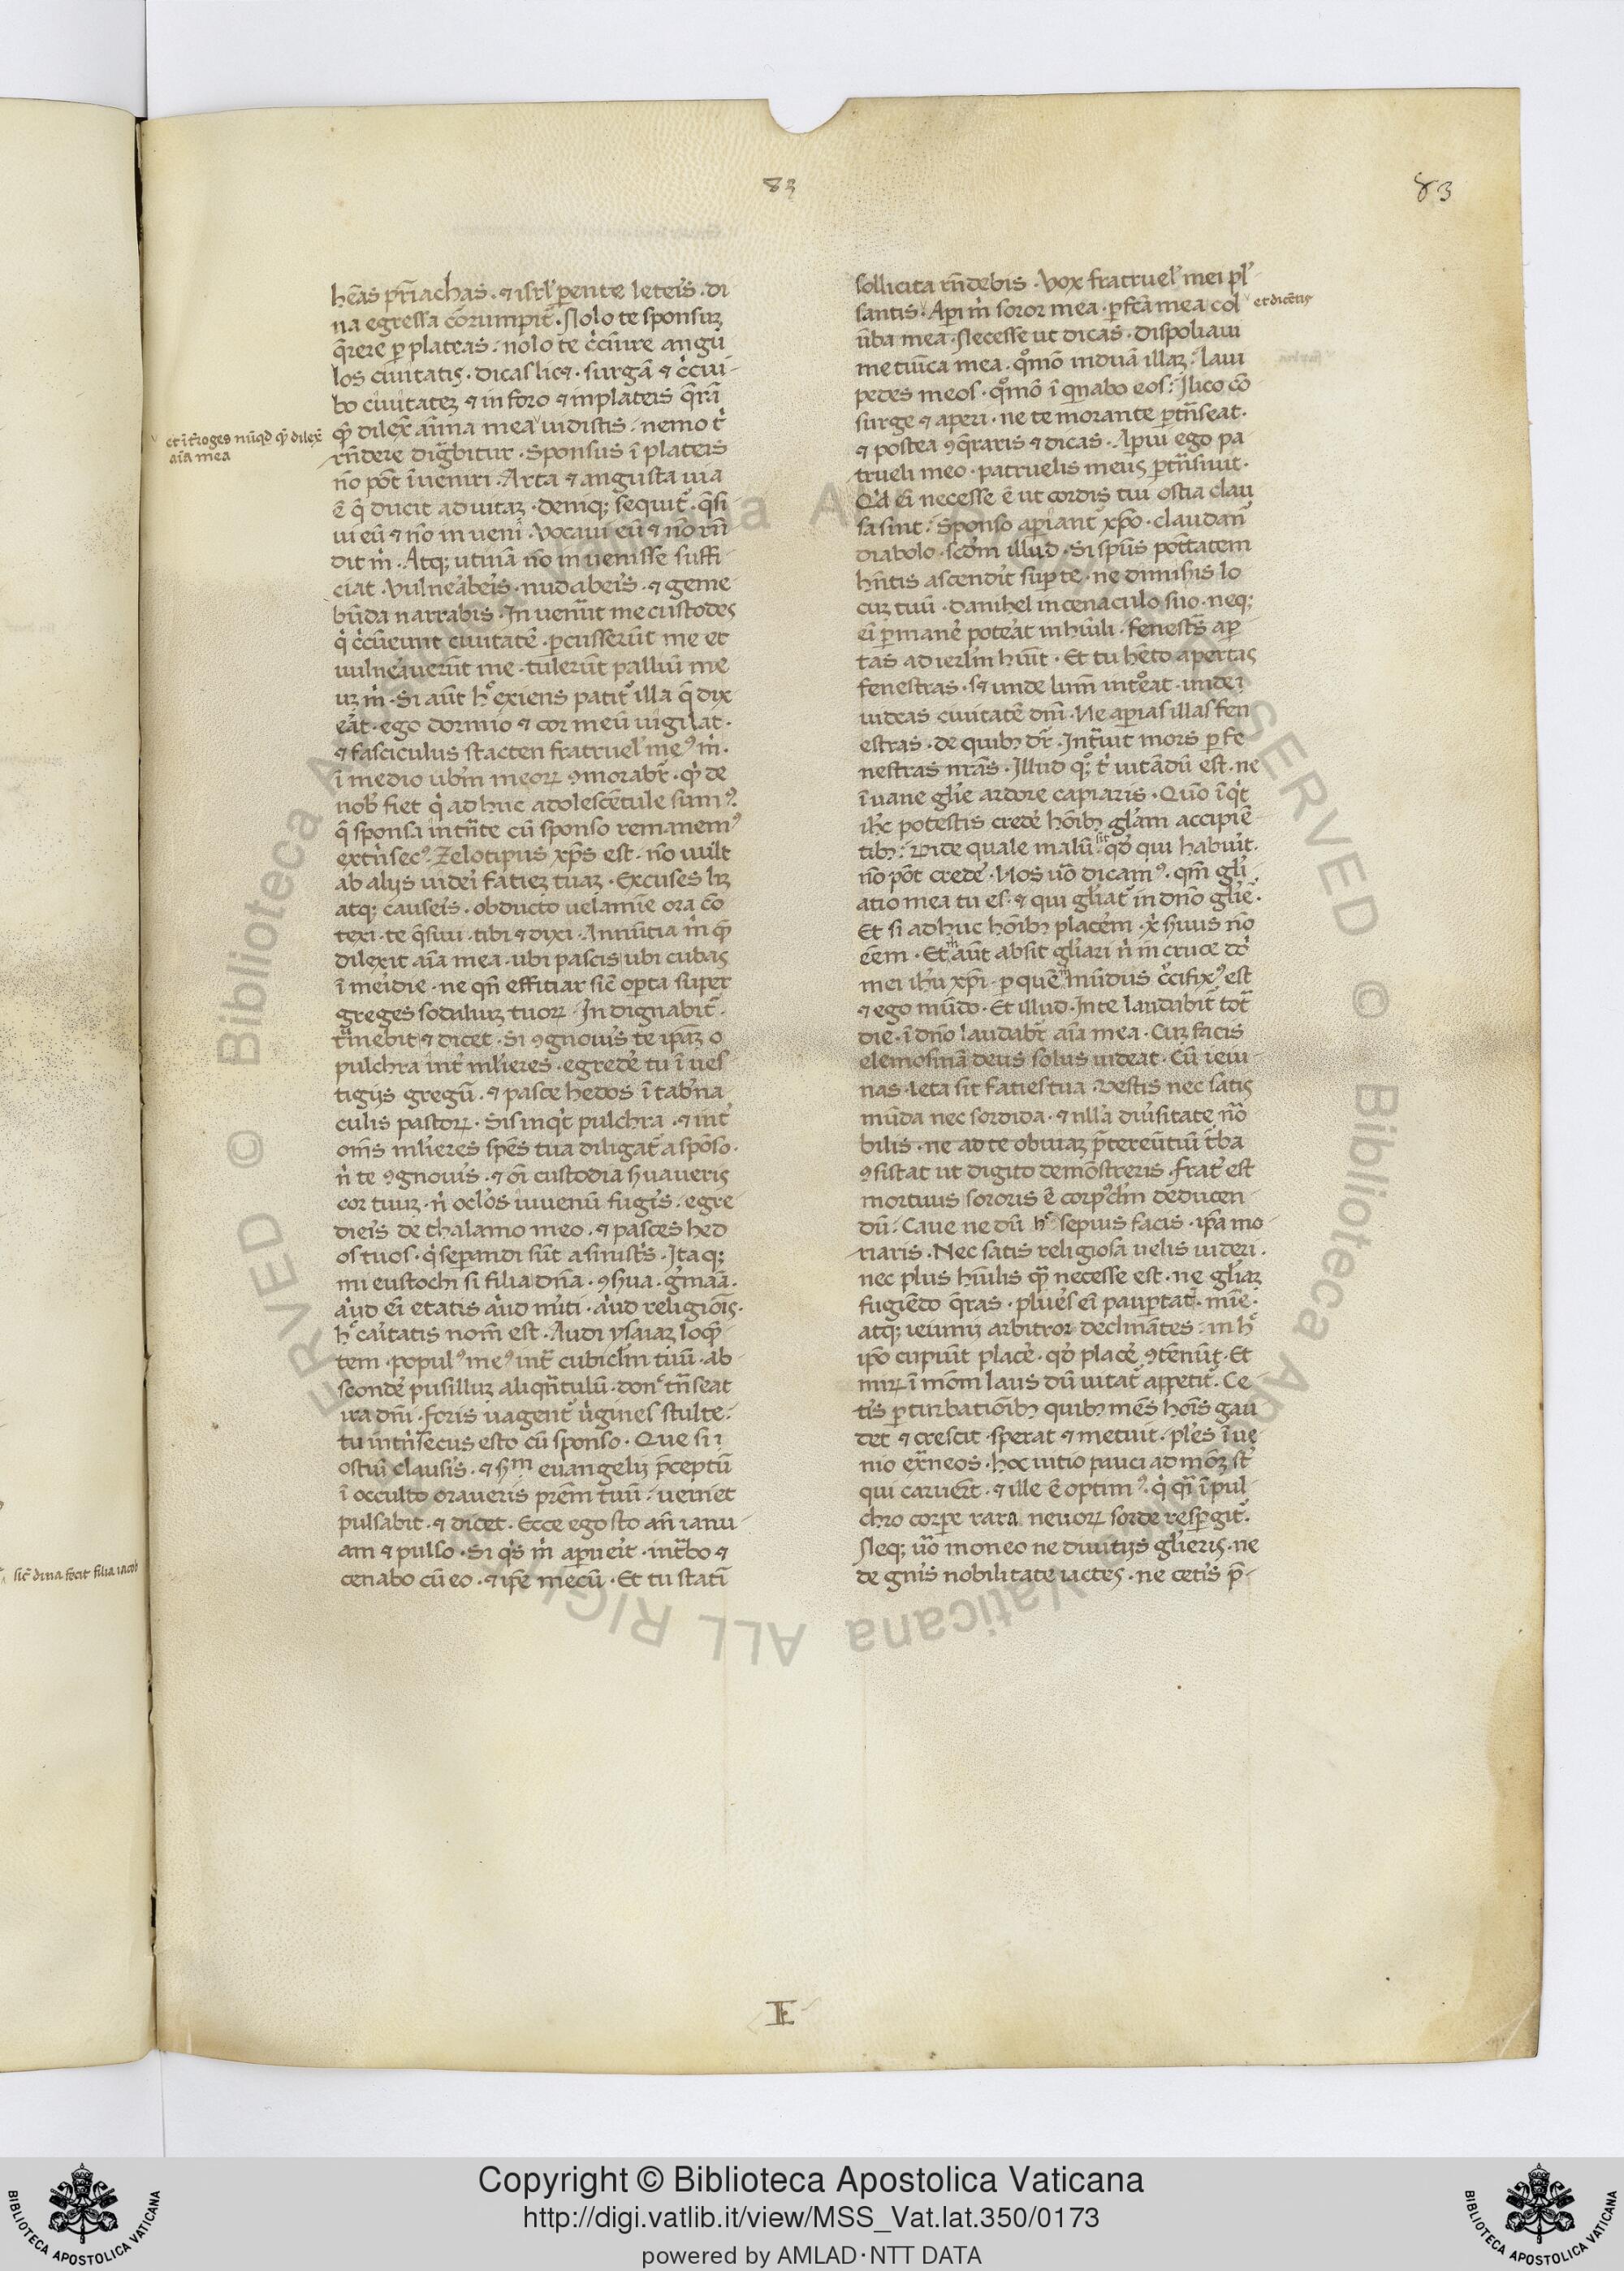 83
83
hēas pr̄iachas · ⁊ isrl̓ penite leteris · di
na egressa corrumpit᷑ · Nolo te sponsuꝫ
q̄rere ꝑ plateas · nolo te cͥcūire angu
los ciuitatis · dicas licꝫ · surgā ⁊ cͥcui-
bo ciuitateꝫ ⁊ in foro ⁊ in plateis q̄rā
qͣ dilex̄ anima mea uidistis · nemo t͛
rn̄dere dig̅bitur · Sponsus ī plateis
nō pōt īueniri · Arta ⁊ angusta uia
ē q̄ ducit ad uitaꝫ · deniqꝫ sequit᷑ · q̄si
ui eū ⁊ nō inueni · Vocaui eū ⁊ nō rn̄
dit m̓ · Atqꝫ utinā nō inuenisse suffi-
ciat · Vulneraberis · nudaberis · ⁊ geme-
būda narrabis · Inuenerūt me custodes
q̓ cͥcūeunt ciuitatē · ꝑcusserūt me et
uulnerauerūt me · tulerūt palliū me
uꝫ m̓ · Si aūt h̊ exiens patit᷑ illa q̄ dix
erat · ego dormio ⁊ cor meū uigilat ·
⁊ fasciculus stacten fratruel̓ meꝰ m̓ ·
ī medio uber̄m meoꝝ ꝯmorabit᷑ · q̓ de
nob̓ fiet q̓ adhuc adolescētule sumꝰ ·
q̄ sponsa intn̄te cū sponso remanemꝰ
extn̓secꝰ · Zelotipus xp̄s est · nō uult
ab alijs uideri fatieꝫ tuaꝫ · Excuses lꝫ
atqꝫ causeris · obducto uelamīe ora cō
texi · te q̄siui tibi ⁊ dixi · Annūtia m̓ q̄
dilexit aīa mea · ubi pascis ubi cubas
ī meridie · ne qn̄ effitiar sic̄ oꝑta super
greges sodaliuꝫ tuoꝝ · Indignabit᷑ ·
tumebit ⁊ dicet · Si ꝯgnouis te ipaꝫ o
pulchra int̄ ml̓ieres · egredere tu ī ues
tigijs gregū · ⁊ pasce hedos ī tab̓na
culis pastoꝝ · Sis inqt̓ pulchra · ⁊ int̄
om̄s ml̓ieres spēs tua diligat᷑ a spōso ·
n̓ te ꝯgnouis · ⁊ oī custodia suaueris
cor tuuꝫ · n̓ oclo̓s iuuenū fugis · egre
dieris de thalamo meo · ⁊ pasces hed
os tuos · q̓ seꝑandi sūt a sinistris · Itaqꝫ
mi eustochi si filia dn̄a · ꝯserua · germana ·
aliud eī etatis aliud mer̓iti · aliud religiōis ·
h̊ caritatis nom̄ est · Audi ysaiaꝫ loq̄-
tem · populꝰ meꝰ int᷑ cubicl̓m tuū · ab-
scondere pusilluꝫ aliqn̄tulū · donc̄ tn̄seat
ira dn̄i · Foris uagent᷑ u̓gines stulte ·
tu intn̓secus esto cū sponso · Que si i
ostiū clausis · ⁊ sm̄ euangelij p̄ceptū
ī occulto oraueris prēm tuū · ueniet
pulsabit · ⁊ dicet · Ecce ego sto an̄ ianu-
am ⁊ pulso · Si q̓s m̓ aꝑueit · int̄bo ⁊
cenabo cū eo · ⁊ ipē mecū · Et tu statī
et īt̄roges nūqd q̄ dilex̄
aīa mea
sic̄ dina fecit filia iacob
sollicita rn̄debis · Vox fratruel̓ mei pl̓-
santis · Aꝑi m̓ soror mea · ꝑfc̄a mea col
ūba mea · Necesse ut dicas · Dispoliaui
et dicētis
me tunica mea · qo̓mō induā illaꝫ · laui
pedes meos · qo̓mō ī qnabo eos · Ilico cō
surge ⁊ aperi · ne te morante ꝑtn̄seat ·
⁊ postea ꝯq̄raris ⁊ dicas · Aꝑui ego pa-
trueli meo · patruelis meus ꝑtn̄siuit ·
Qd̓ eī necesse ē ut cordis tui ostia clau
sa sint · Sponso aꝑiant᷑ xp̄o · claudan᷑
diabolo · scd̓m illud · Si spūs potetatem
hn̄tis ascendit super te · ne dimihis lo
cuꝫ tuū · Danihel in cenaculo suo · neqꝫ
eī ꝑmane̓ poterat in humili · fenestras aꝑ
tas ad ierl̓m huīt · Et tu hēto apertas
fenestras · sꝫ unde lum̄ introeat · unde i
uideas ciuitatē dn̄i · Ne aꝑias illas fen
estras · de quibꝫ dr̄ · Int̄uit mors ꝑ fe
nestras nr̄as · Illud qo̓ꝫ t̓ uitādū est · ne
īuane gl̓ie ardore capiaris · Quō īqt̓
ih̓c potestis crede̓ hōibꝫ gl̓am accipiē
tibꝫ · Vide quale malū sit qo̓ qui habuit ·
nō pōt crede̓ · Nos u̓o dicamꝰ · qm̄ gl̓i
atio mea tu es · ⁊ qui gl̓iat᷑ in dn̄o glie᷑ ·
Et si adhuc hōibꝫ placem̓ · x̓ suus nō
eēm · Et m̓ aūt absit gl̓iari n̓ in cruce dn̓
mei ih̓u xp̄i · ꝑ quē m̓ mūdus cͥcifixꝰ est
⁊ ego mūdo · Et illud · In te laudabit᷑ tot̄
die · ī dn̄o laudabit᷑ aīa mea · Cuꝫ facis
elemosinā deus solus uideat · Cū ieiu-
nas · leta sit faties tua · Vestis nec satis
mūda nec sordida · ⁊ nlla̓ diu̓sitate no
bilis · ne ad te obuiaꝫ p̄tereūtiū t̄ba
ꝯsistat ut digito demōstreris · frat̓ est
mortuus sororis ē corpꝰcl̓m deducen-
dū · Caue ne dū h̊ sepius facis · ipa mo-
riaris · Nec satis religiosa uelis uideri ·
nec plus hūilis q̄ necesse est · ne gl̓iaꝫ
fugiēdo q̄ras · plūe̓s eī pauꝑtat̓ · mīe ·
atqꝫ ieiunij arbitroꝝ declinātes · in h̊
ipō cupiūt place̓ · qo̓ place̓ ꝯtēnūt · Et
miꝝ ī mōm laus dū uitat᷑ appetit᷑ · Ce
tis̓ ꝑturbatiōibꝫ quibꝫ mēs hoīs gau
det ⁊ crescit · sperat ⁊ metuit · ples̓ īue
nio ex̄neos · hoc uitio pauci admōꝫ st̓
qui caruert̄ · ⁊ ille ē optimꝰ · q̓ q̄i ī pul
chro corpe rara neuoꝝ sorde resꝑgit᷑ ·
Neqꝫ u̓o moneo ne diuitijs gl̓ieris · ne
de gnis̓ nobilitate iactes · ne cetis̓ p̄-
E
Copyright © Biblioteca Apostolica Vaticana
http://digi.vatlib.it/view/MSS_Vat.lat.350/0173
powered by AMLAD·NTT DATA
BIBLIOTECA APOSTOLICA VATICANA
BIBLIOTECA APOSTOLICA VATICANA
© Biblioteca Apostolica Vaticana ALL RIGHTS RESERVED